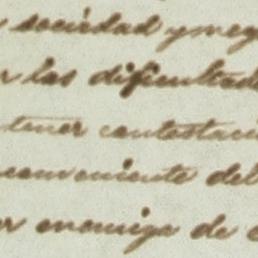 sociedad y neg
r las dificultade
tener contestaci
conveniente del
or enemiga de